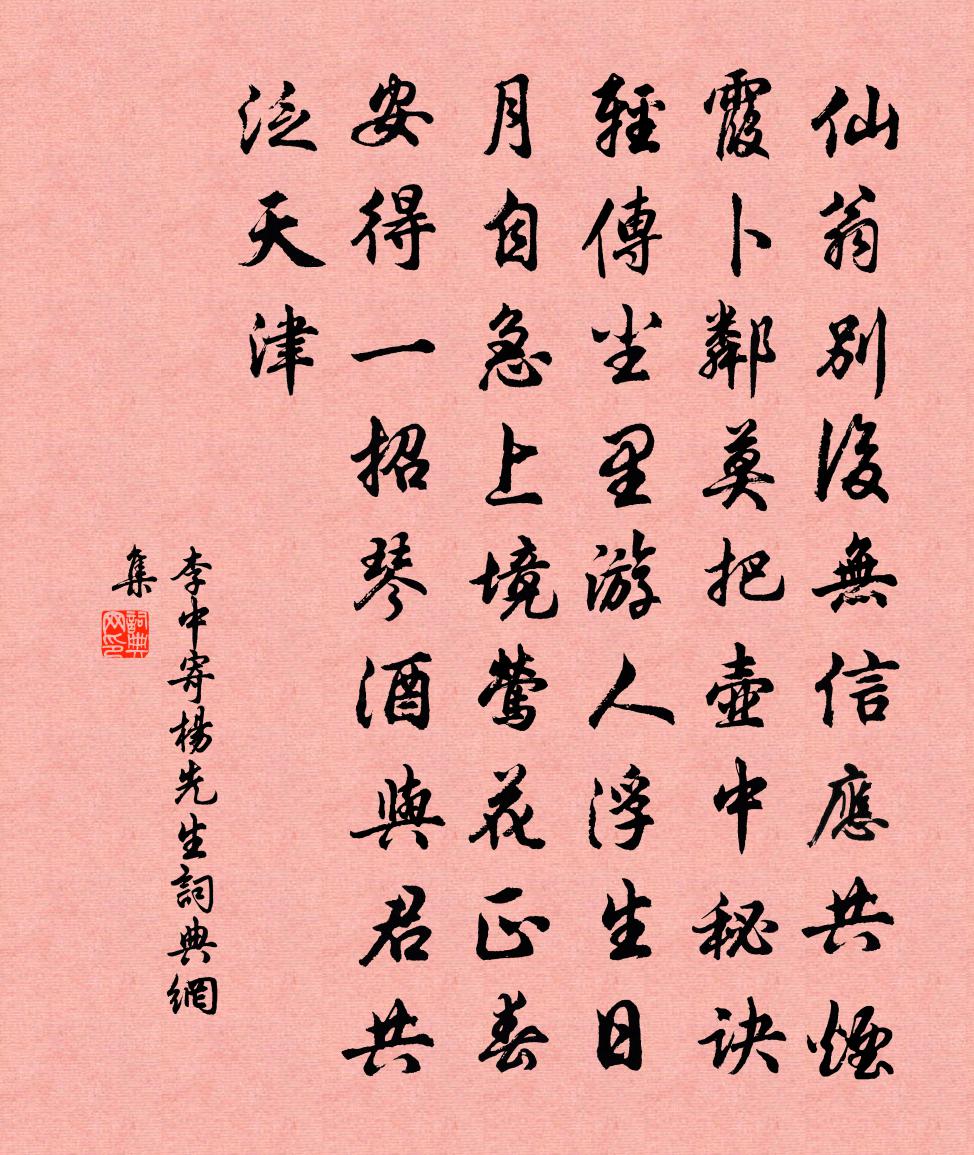 仙翁別後無信應共煙
霞卜鄰莫把壺中秘訣
輕傳塵里游人浮生日
月自急上境鶯花正春
安得一招琴酒與君共
泛天津
李中寄楊先生詞典網
集
詞典網印